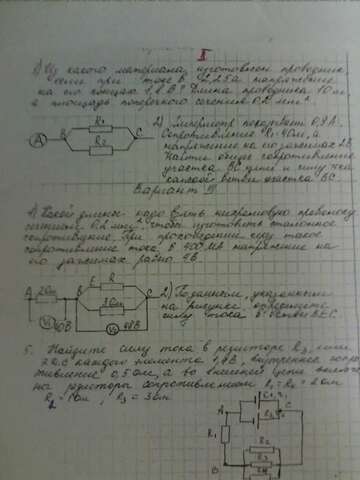 II
1) Из какого материала изготовлен проводник,
если при токе в 2,25а напряжение
на его концах 1,8 В? Длина проводника 10 м
а площадь поперечного сечения 0,2 мм²
2) Амперметр показывает 0,8А.
Сопротивление R₁ 4ом, а
напряжение на его зажимах 2В
Найти общее сопротивление
участка ВС цепи и силу тока
каждой ветви участка ВС.
A B R₁ R₂ C
Вариант III
1) Какой длины надо взять нихромовую проволоку
сечением 0,2 мм², чтобы изготовить
сопротивление При прохождении
сопротивление тока в 400 мА напряжение на
его зажимах равно 4В.
A 2Ом B E R C 3Ом
V 10В V 48В
2) По данным, указанным
на рисунке, определите
силу тока в ветви ВЕС.
5. Найдите силу тока в резисторе R₃, если
ЭДС каждого элемента 1,4 В, внутреннее сопро
тивление 0,5 Ом, а во внешней цепи включе
ны резисторы сопротивлением R₁=R₂=2 ом
R₂=1ом, R₃=3ом
A C R₁ R₂ R₃ B